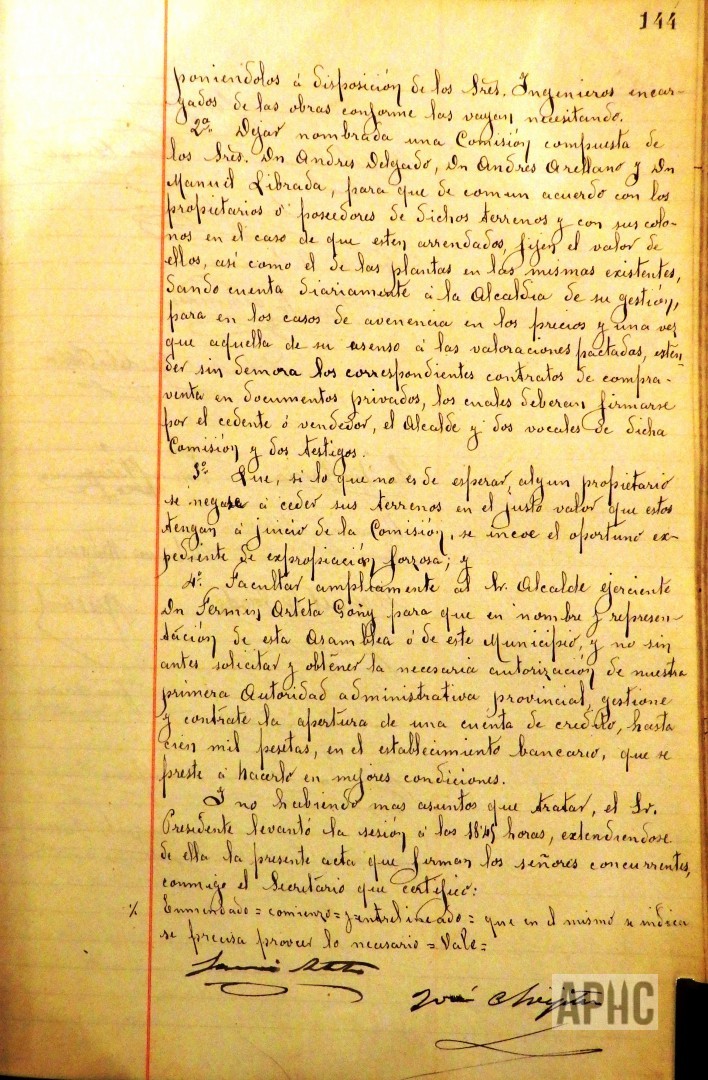 144
poniendolos á disposición de los Sres. Ingenieros encar-
gados de las obras conforme las vayan necesitando.
2ª. Dejar nombrada una Comisión compuesta de
los Sres. Dn Andres Delgado, Dn Andres Arellano y Dn
Manuel Librada, para que de comun acuerdo con los
propietarios ó poseedores de dichos terrenos y con sus colo-
nos en el caso de que esten arrendados, fijen el valor de
ellos, asi como el de las plantas en las mismas existentes,
dando cuenta diariamente á la Alcaldia de su gestión,
para en los casos de avenencia en los precios y una vez
que aquella de su asenso á las valoraciones pactadas, esten-
der sin demora los correspondientes contratos de compra-
venta en documentos privados, los cuales deberan firmarse
por el cedente ó vendedor, el Alcalde y dos vocales de dicha
Comisión y dos testigos.
3º. Que, si lo que no es de esperar, algun propietario
se negase á ceder sus terrenos en el justo valor que estos
tengan á juicio de la Comisión, se incoe el oportuno ex-
pediente de expropiación forzosa; y
4º. Facultar ampliamente al Sr. Alcalde ejerciente
Dn Fermin Arteta Goñy para que en nombre y represen-
tación de esta Asamblea ó de este Municipio, y no sin
antes solicitar y obtener la necesaria autorización de nuestra
primera Autoridad administrativa provincial, gestione
y contrate la apertura de una cuenta de credito, hasta
cien mil pesetas, en el establecimiento bancario, que se
preste á hacerlo en mejores condiciones.
Y no habiendo mas asuntos que tratar, el Sr.
Presidente levantó la sesión á las 18'45 horas, extendiendose
de ella la presente acta que firman los señores concurrentes,
conmigo el Secretario que certifico:
Enmendado = comienzo = y = entrelineado = que en el mismo se indica
se precisa proveer lo necesario = Vale =
José
APHC